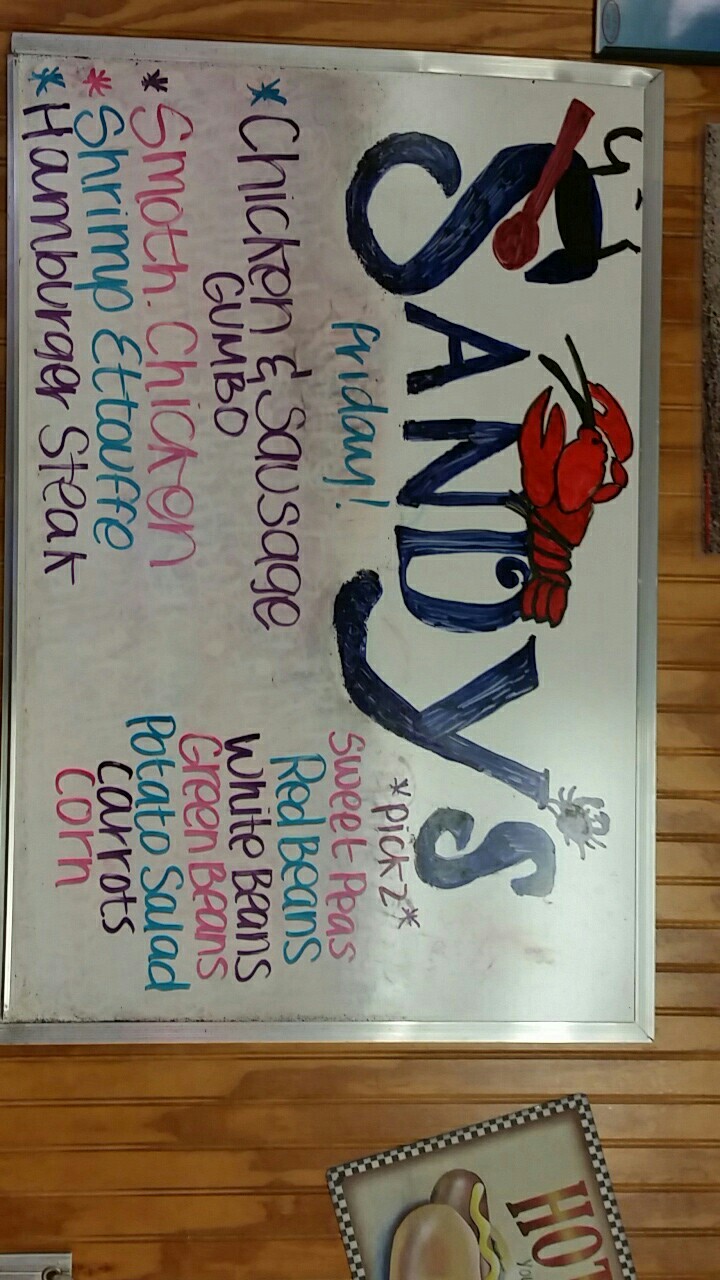 SANDy'S
friday!
* Chicken & Sausage
GUMBO
* Smoth. Chicken
* Shrimp Ettouffe
* Hamburger Steak
*pick 2*
Sweet Peas
Red Beans
White Beans
Green Beans
Potato Salad
Carrots
Corn
HOT